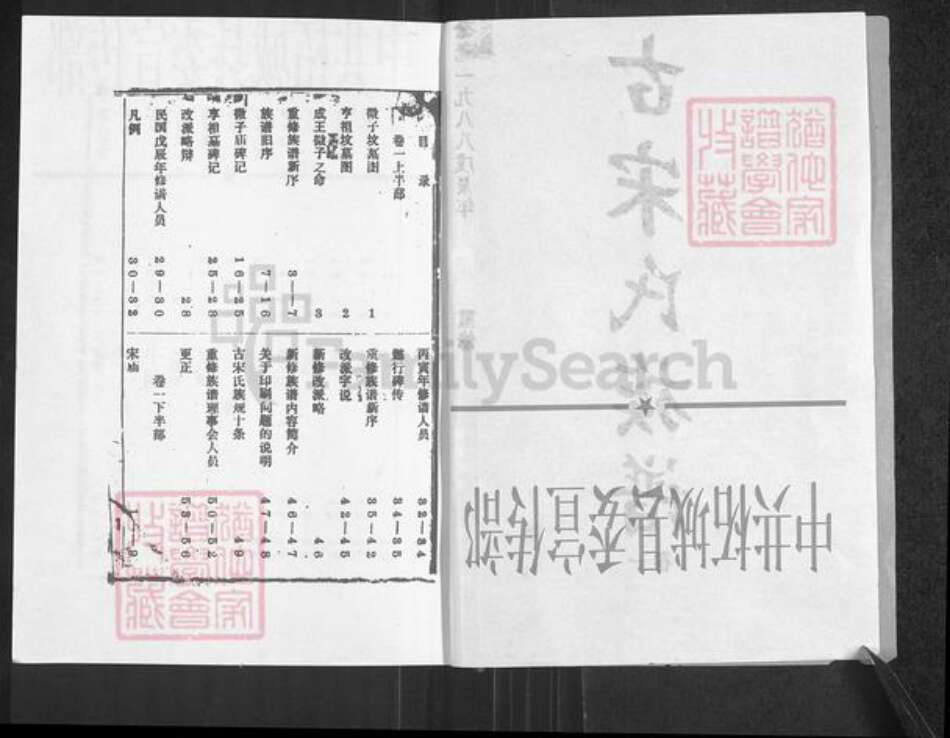 古宋氏族谱
一九八八戊辰年
中共柘城县委宣传部
目 录
卷一上半部
微子坟墓图 1
亨祖坟墓图 2
成王微子之命 3
重修族谱新序 3—7
族谱旧序 7—16
微子庙碑记 16—25
亨祖墓碑记 25—28
改派略辩 28
民国戊辰年修谱人员 29—30
凡例 30—32
丙寅年修谱人员 32—34
懿行碑传 34—35
重修族谱新序 35—42
改派字说 42—45
新修改派略 46
新修族谱内容简介 46—47
关于印刷问题的说明 47—48
古宋氏族规十条 49
重修族谱理事会人员 50—52
更正 53—56
卷一下半部
FamilySearch
譜學會
收藏
譜學會
收藏